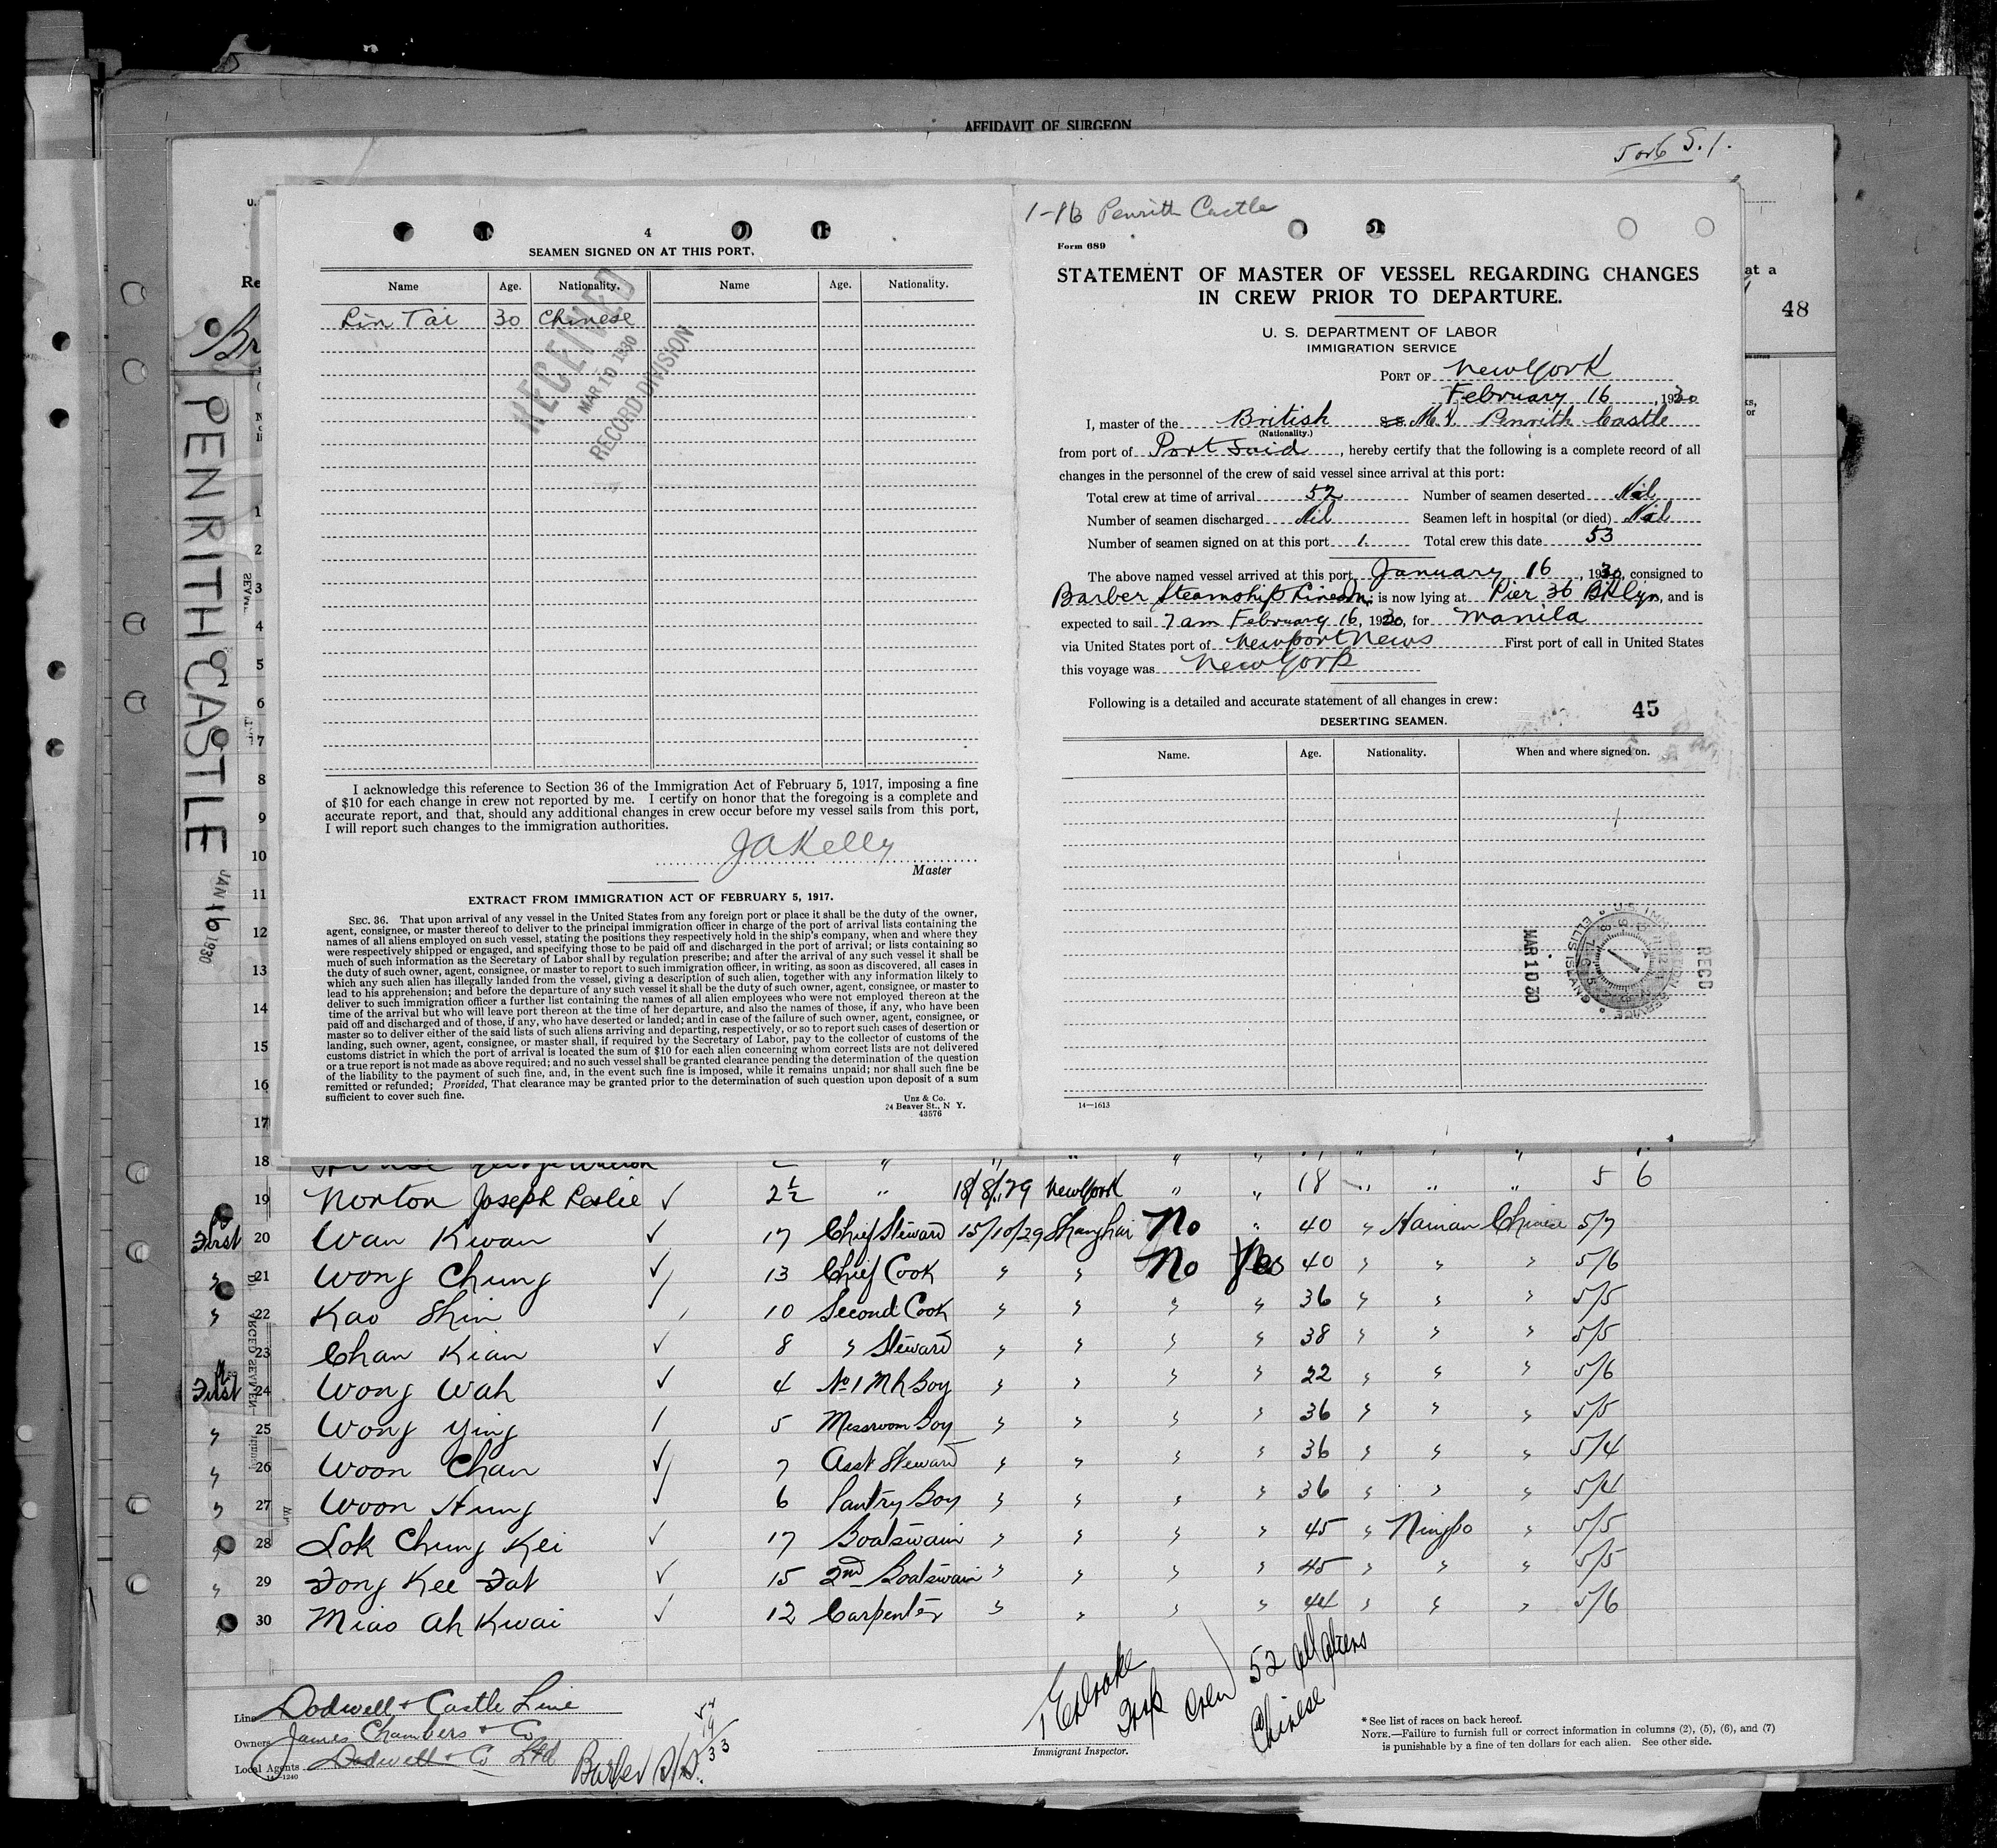 AFFIDAVIT OF SURGEON
5 or 6 S.1.
48
PENRITH CASTLE JAN 16 1930
4
SEAMEN SIGNED ON AT THIS PORT.
Name Age. Nationality. Name Age. Nationality.
Lin Tai 30 Chinese
RECEIVED
MAR 10 1930
RECORD DIVISION
I acknowledge this reference to Section 36 of the Immigration Act of February 5, 1917, imposing a fine
of $10 for each change in crew not reported by me. I certify on honor that the foregoing is a complete and
accurate report, and that, should any additional changes in crew occur before my vessel sails from this port,
I will report such changes to the immigration authorities.
JA Kelly
Master
EXTRACT FROM IMMIGRATION ACT OF FEBRUARY 5, 1917.
SEC. 36. That upon arrival of any vessel in the United States from any foreign port or place it shall be the duty of the owner,
agent, consignee, or master thereof to deliver to the principal immigration officer in charge of the port of arrival lists containing the
names of all aliens employed on such vessel, stating the positions they respectively hold in the ship's company, when and where they
were respectively shipped or engaged, and specifying those to be paid off and discharged in the port of arrival; or lists containing so
much of such information as the Secretary of Labor shall by regulation prescribe; and after the arrival of any such vessel it shall be
the duty of such owner, agent, consignee, or master to report to such immigration officer, in writing, as soon as discovered, all cases in
which any such alien has illegally landed from the vessel, giving a description of such alien, together with any information likely to
lead to his apprehension; and before the departure of any such vessel it shall be the duty of such owner, agent, consignee, or master to
deliver to such immigration officer a further list containing the names of all alien employees who were not employed thereon at the
time of the arrival but who will leave port thereon at the time of her departure, and also the names of those, if any, who have been
paid off and discharged and of those, if any, who have deserted or landed; and in case of the failure of such owner, agent, consignee, or
master so to deliver either of the said lists of such aliens arriving and departing, respectively, or so to report such cases of desertion or
landing, such owner, agent, consignee, or master shall, if required by the Secretary of Labor, pay to the collector of customs of the
customs district in which the port of arrival is located the sum of $10 for each alien concerning whom correct lists are not delivered
or a true report is not made as above required; and no such vessel shall be granted clearance pending the determination of the question
of the liability to the payment of such fine, and, in the event such fine is imposed, while it remains unpaid; nor shall such fine be
remitted or refunded; Provided, That clearance may be granted prior to the determination of such question upon deposit of a sum
sufficient to cover such fine.
Unz & Co.
24 Beaver St., N Y.
43576
1-16 Penrith Castle
Form 689
STATEMENT OF MASTER OF VESSEL REGARDING CHANGES
IN CREW PRIOR TO DEPARTURE.
U. S. DEPARTMENT OF LABOR
IMMIGRATION SERVICE
PORT OF New York
February 16, 1930
I, master of the British S.S. M.V. Penrith Castle
(Nationality.)
from port of Port Said, hereby certify that the following is a complete record of all
changes in the personnel of the crew of said vessel since arrival at this port:
Total crew at time of arrival 52 Number of seamen deserted Nil
Number of seamen discharged Nil Seamen left in hospital (or died) Nil
Number of seamen signed on at this port 1. Total crew this date 53
The above named vessel arrived at this port January 16, 1930, consigned to
Barber Steamship Lines Inc; is now lying at Pier 36 Bklyn, and is
expected to sail 7 am February 16, 1930, for Manila
via United States port of Newport News First port of call in United States
this voyage was New York
Following is a detailed and accurate statement of all changes in crew:
45
DESERTING SEAMEN.
Name. Age. Nationality. When and where signed on.
U.S. IMMIGRATION SERVICE ELLIS ISLAND
REC'D
MAR 10 30
14—1613
1
2
3
4
5
6
7
8
9
10
11
12
13
14
15
16
17
18
19 Norton Joseph Leslie 2½ " 18/8/29 New York " " 18 " " " 5 6
First 20 Wan Kwan 17 Chief Steward 15/10/29 Shanghai No " 40 " Hainan Chinese 5/7
" 21 Wong Chung 13 Chief Cook " " No Yes 40 " " " 5/6
" 22 Kao Shin 10 Second Cook " " " " 36 " " " 5/5
23 Chan Kian 8 " Steward " " " " 38 " " " 5/5
First 24 Wong Wah 4 No 1 M R Boy " " " " 22 " " " 5/6
" 25 Wong Ying 5 Messroom Boy " " " " 36 " " " 5/5
" 26 Woon Chan 7 Asst Steward " " " " 36 " " " 5/4
" 27 Woon Hung 6 Pantry Boy " " " " 36 " " " 5/4
" 28 Lok Chung Kei 17 Boatswain " " " " 45 " Ningpo " 5/5
" 29 Fong Kee Fat 15 2nd Boatswain " " " " 45 " " " 5/5
" 30 Miao Ah Kwai 12 Carpenter " " " " 44 " " " 5/6
Line Dodwell & Castle Line
Owners James Chambers & Co
Local Agents Dodwell & Co Ltd
14—1240
Immigrant Inspector.
Crew 52 all aliens
Chinese
* See list of races on back hereof.
NOTE.—Failure to furnish full or correct information in columns (2), (5), (6), and (7)
is punishable by a fine of ten dollars for each alien. See other side.